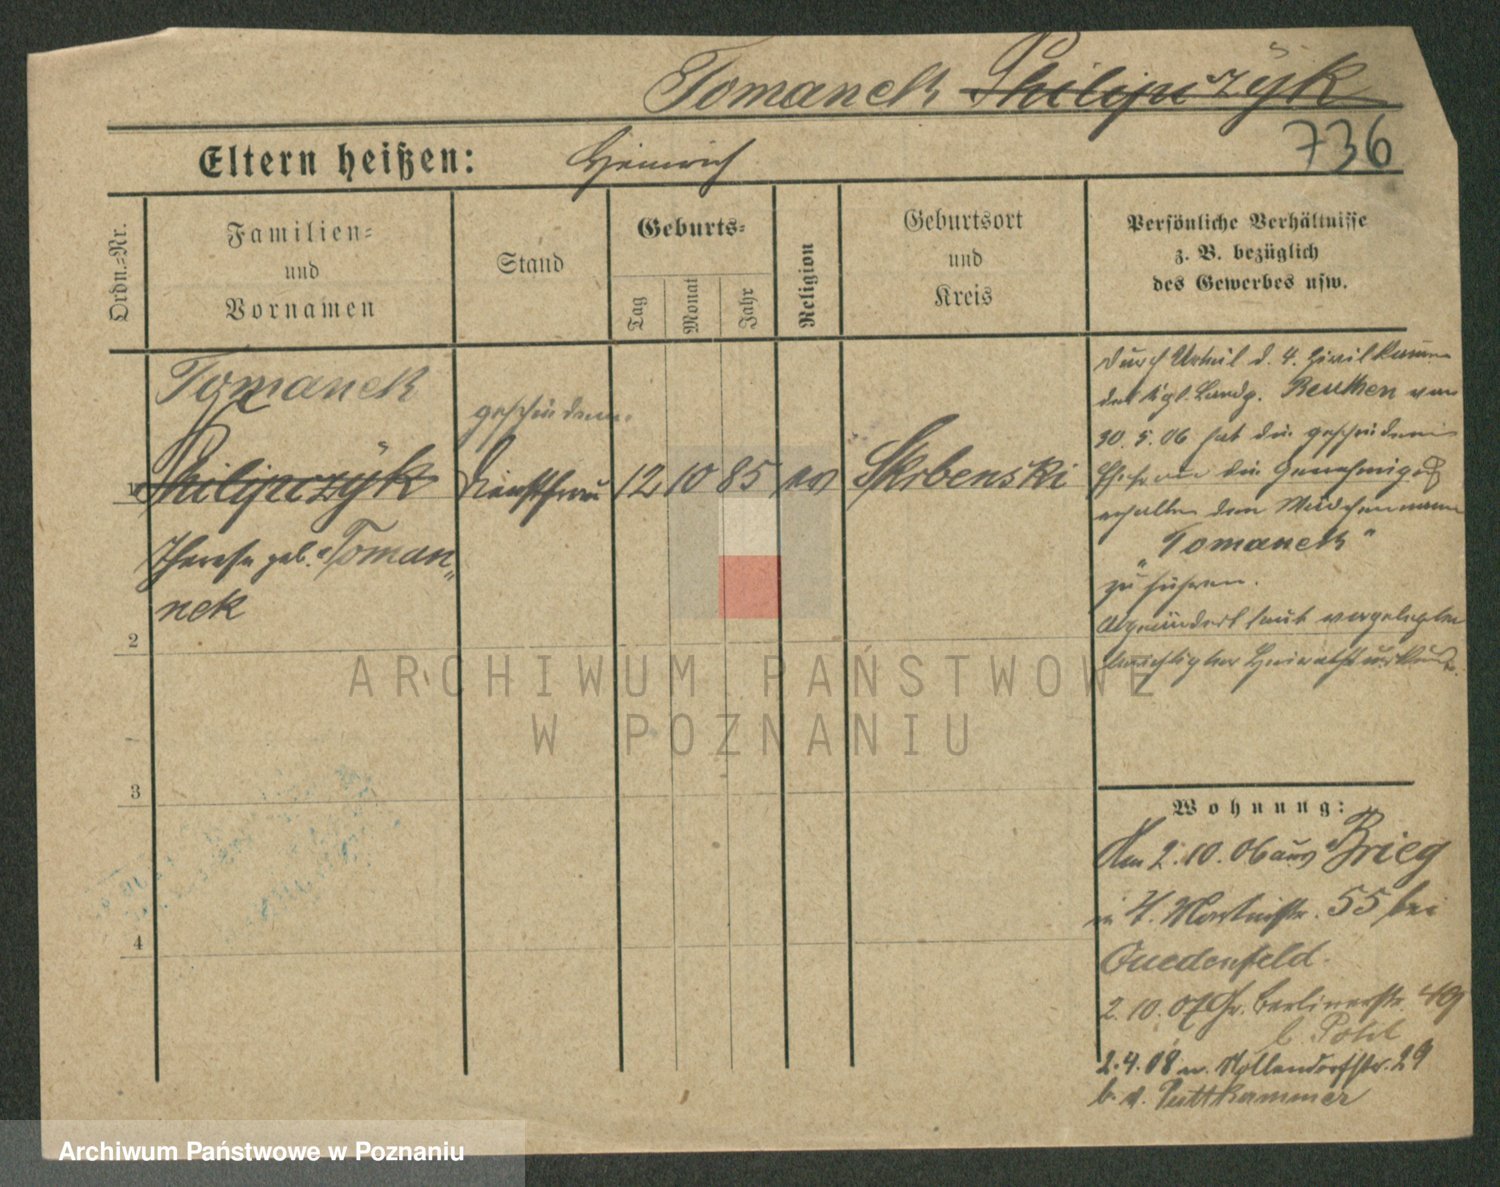 Tomanek Philipczÿk
736
Eltern heißen: Heinrich
Ordn.-Nr.
Familien-
und
Vornamen
Stand
Geburts-
Tag
Monat
Jahr
Religion
Geburtsort
und
Kreis
Persönliche Verhältnisse
z. B. bezüglich
des Gewerbes usw.
Tomanek
geschieden.
1 Philipczÿk Dienstfrau 12 10 85 Skrbenski
Therese geb. Toman-
nek
2
3
4
Durch Urteil d. 4. Zivilkammer
des Kgl. Landg. Beuthen vom
30. 5. 06 hat die geschiedene
Ehefrau die Genehmig.
erhalten den Mädchennamen
"Tomanek"
zu führen.
Abgeändert laut vorgelegter
berichtigter Heiratsurkunde.
Wohnung:
Am 2.10.06 aus Brieg
in 4. Martinstr. 55 bei
Quedenfeld.
2.10.07 Gr. Berlinerstr. 49
b. Pohl
2.4.08 n. Möllendorfstr. 29
b. v. Puttkammer
ARCHIWUM PAŃSTWOWE
W POZNANIU
Archiwum Państwowe w Poznaniu